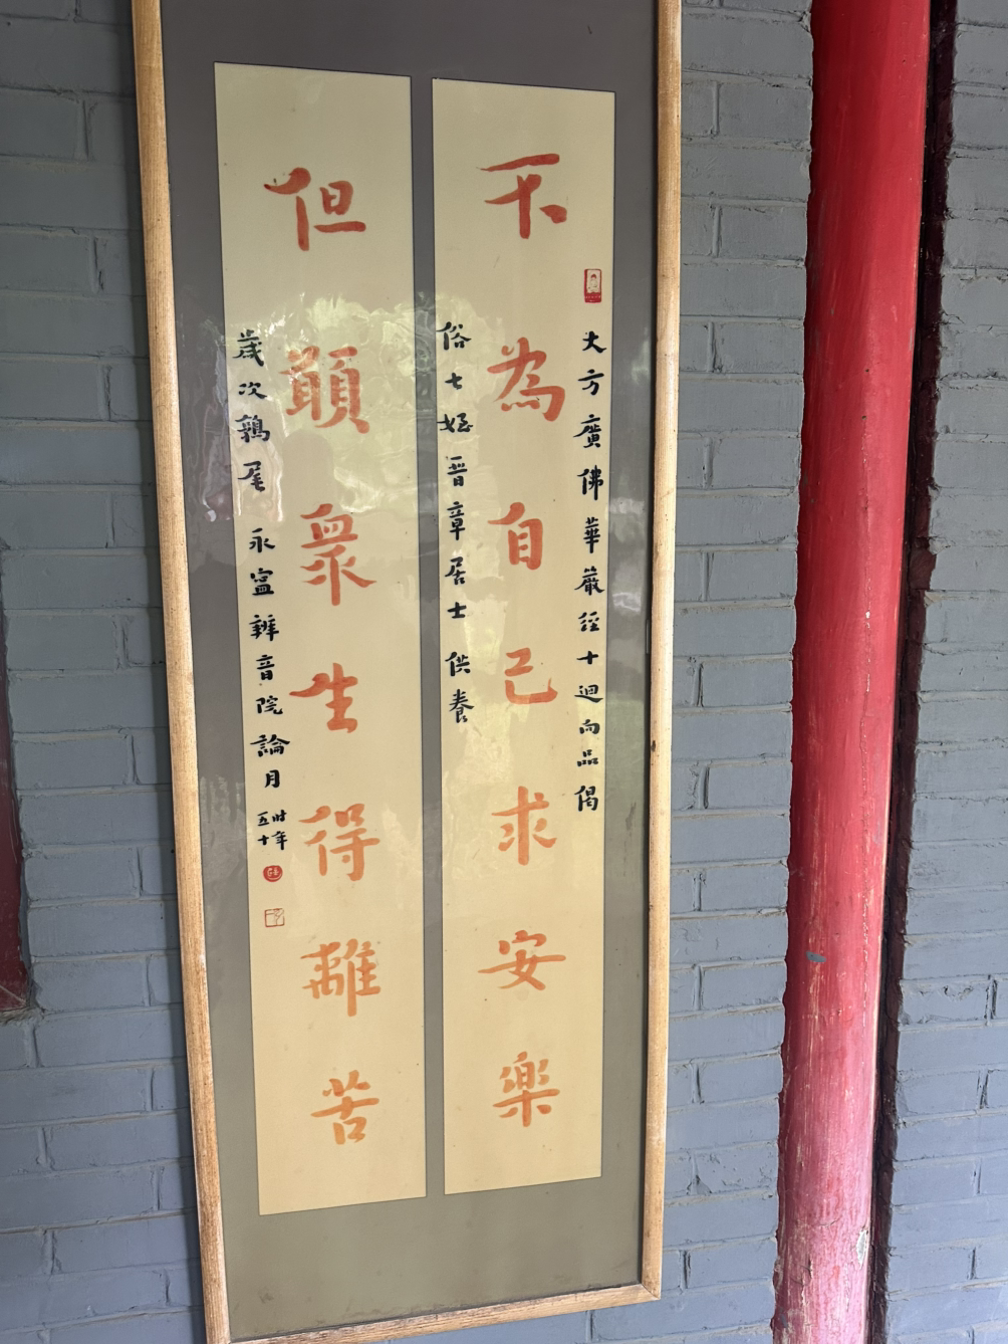 大方廣佛華嚴經十迴向品偈
不為自己求安樂
俗七姪晉章居士 供養
但願眾生得離苦
歲次鶉尾 永寍辨音院論月
時年
五十